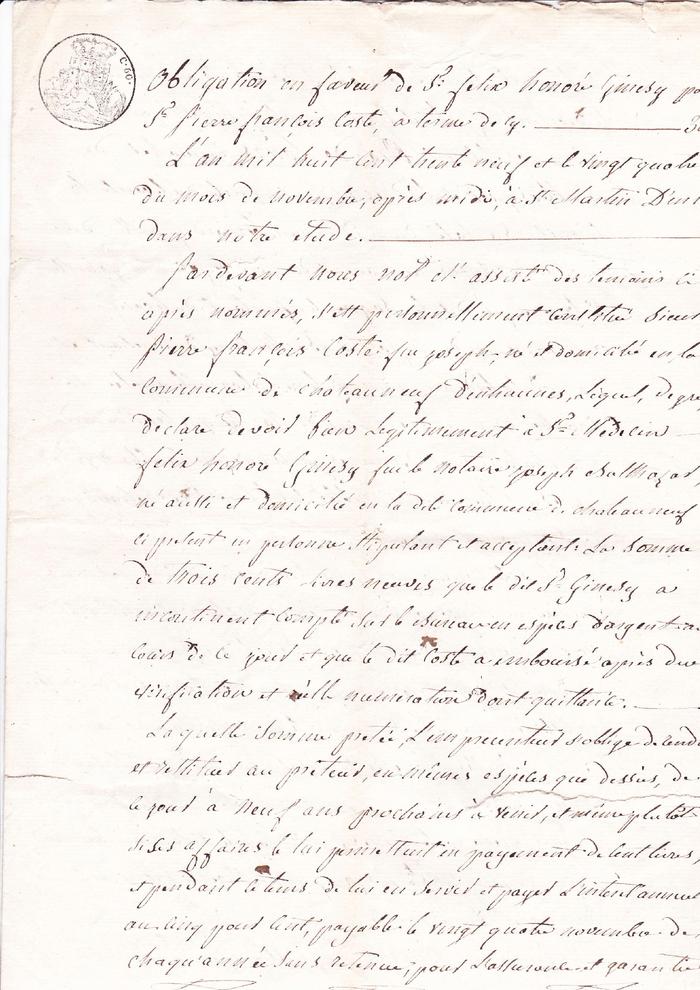 C. 60.
Obligation en faveur de Sr. felix honoré Ginesy
Sr. pierre françois Coste, à terme de 9.
L'an mil huit cent trente neuf et le vingt quatre
du mois de novembre, après midi, à St. Martin D'en
dans notre etude.
Pardevant nous notre et assisté des temoins ci
après nommés, s'est personnellement constitué Sieur
pierre françois Coste feu joseph, né et domicilié en la
commune de châteauneuf d'enhaunes, lequel, de gre
declare devoir bien legitimement à Sr. Medecin
felix honoré Ginesy feu le notaire joseph Balthazar,
né aussi et domicilié en la dite commune de chateauneuf
ci present en personne stipulant et acceptant: La somme
de trois cents livres neuves que le dit Sr. Ginesy a
incontinent compté sur le bureau en espèces d'argent
cours de ce jour et que le dit Coste a emboursé après due
verification et réelle numeration dont quittance.
Laquelle somme pretée, L'emprunteur s'oblige de rend
et restituer au prêteur, en mêmes espèces que dessus, de
ce jour à neuf ans prochains à venir, et même plutôt
si ses affaires le lui permettent en payement de cent livres,
et pendant ce tems de lui en servir et payer L'interet annuel
au cinq pour cent, payable le vingt quatre novembre de
chaqu'année sans retenue; pour L'assurance et garantie